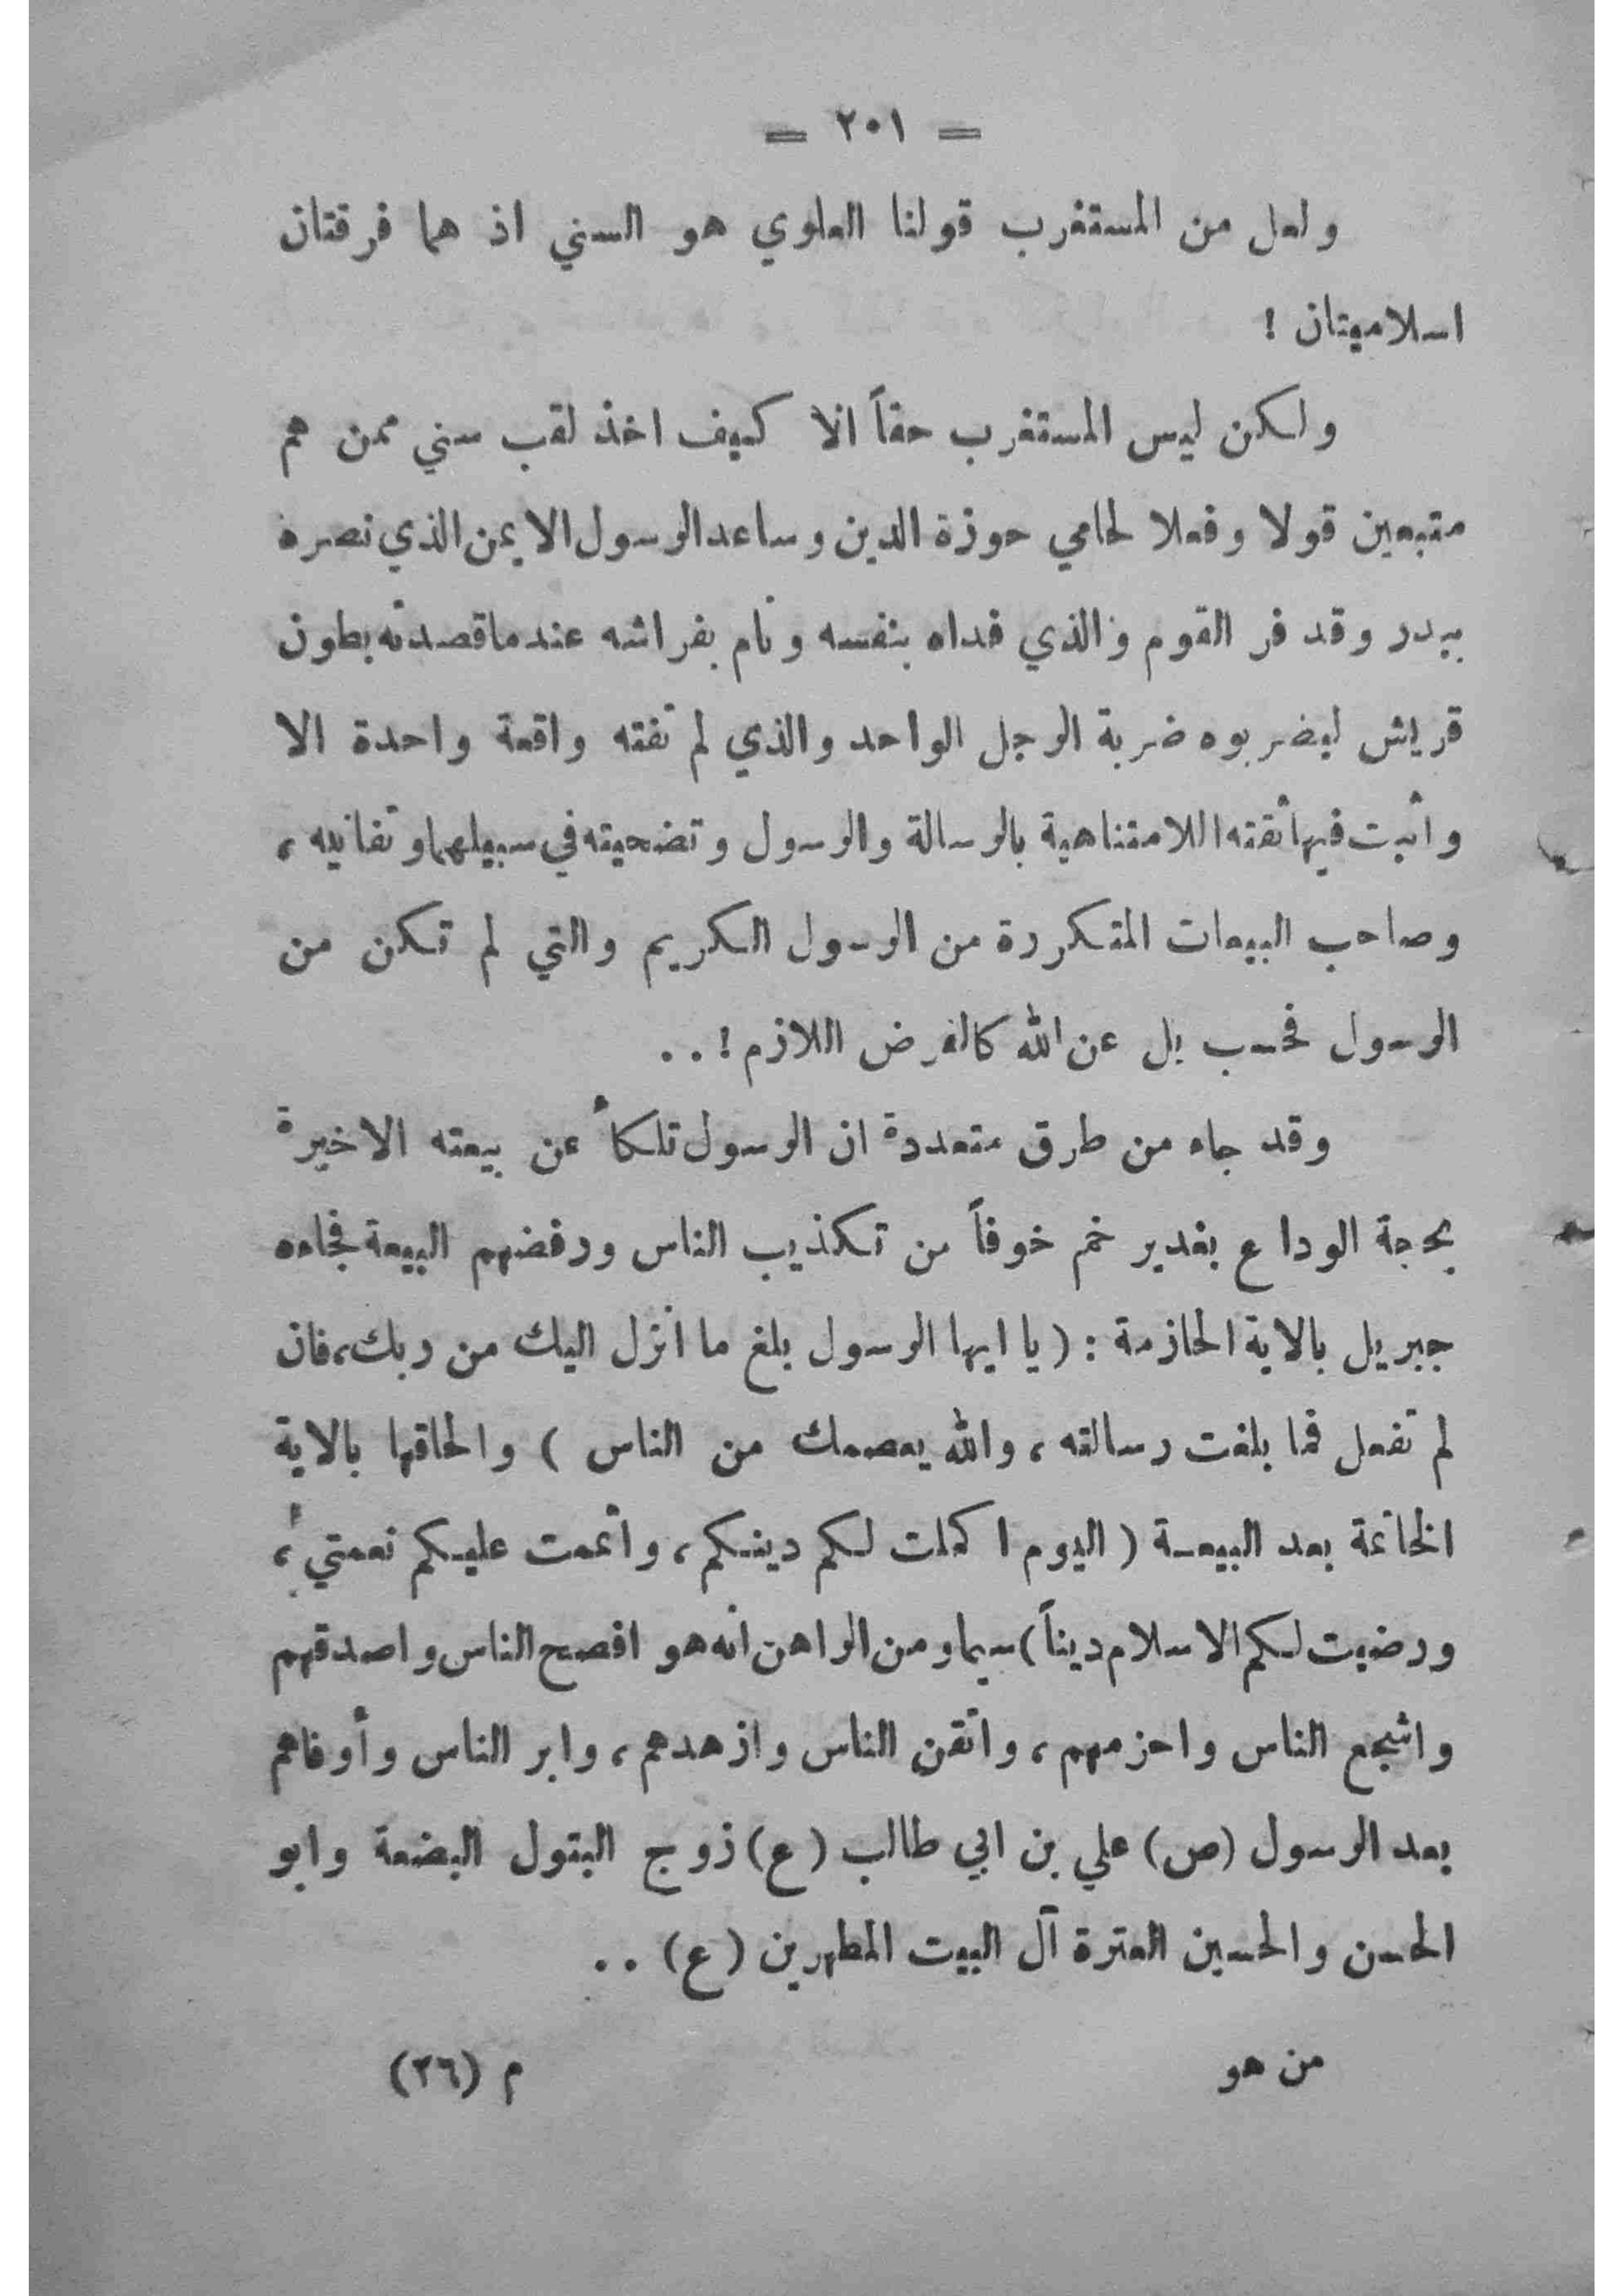 = ٢٠١ =
ولعل من المستغرب قولنا العلوي هو السني اذ هما فرقتان
اسلاميتان !
ولكن ليس المستغرب حقاً الا كيف اخذ لقب سني ممن هم
متبعين قولا وفعلا لحامي حوزة الدين وساعد الرسول الايمن الذي نصره
ببدر وقد فر القوم والذي فداه بنفسه ونام بفراشه عندما قصدته بطون
قريش ليضربوه ضربة الرجل الواحد والذي لم تفته واقعة واحدة الا
وأثبت فيها ثقته اللامتناهية بالرسالة والرسول وتضحيته في سبيلهما وتفانيه ،
وصاحب البيعات المتكررة من الرسول الكريم والتي لم تكن من
الرسول فحسب بل عن الله كالفرض اللازم ! . .
وقد جاء من طرق متعددة ان الرسول تلكأ عن بيعته الاخيرة
بحجة الوداع بغدير خم خوفاً من تكذيب الناس ورفضهم البيعة فجاءه
جبريل بالاية الحازمة : ( يا ايها الرسول بلغ ما انزل اليك من ربك ، فان
لم تفعل فما بلغت رسالته ، والله يعصمك من الناس ) والحاقها بالاية
الخاتمة بعد البيعة ( اليوم اكملت لكم دينكم ، وأتممت عليكم نعمتي ،
ورضيت لكم الاسلام ديناً ) سيما ومن الراهن انه هو افصح الناس واصدقهم
واشجع الناس واحزمهم ، واتقن الناس وازهدهم ، وابر الناس وأوفاهم
بعد الرسول (ص) علي بن ابي طالب (ع) زوج البتول البضعة وابو
الحسن والحسين العترة آل البيت المطهرين (ع) . .
من هو م (٢٦)